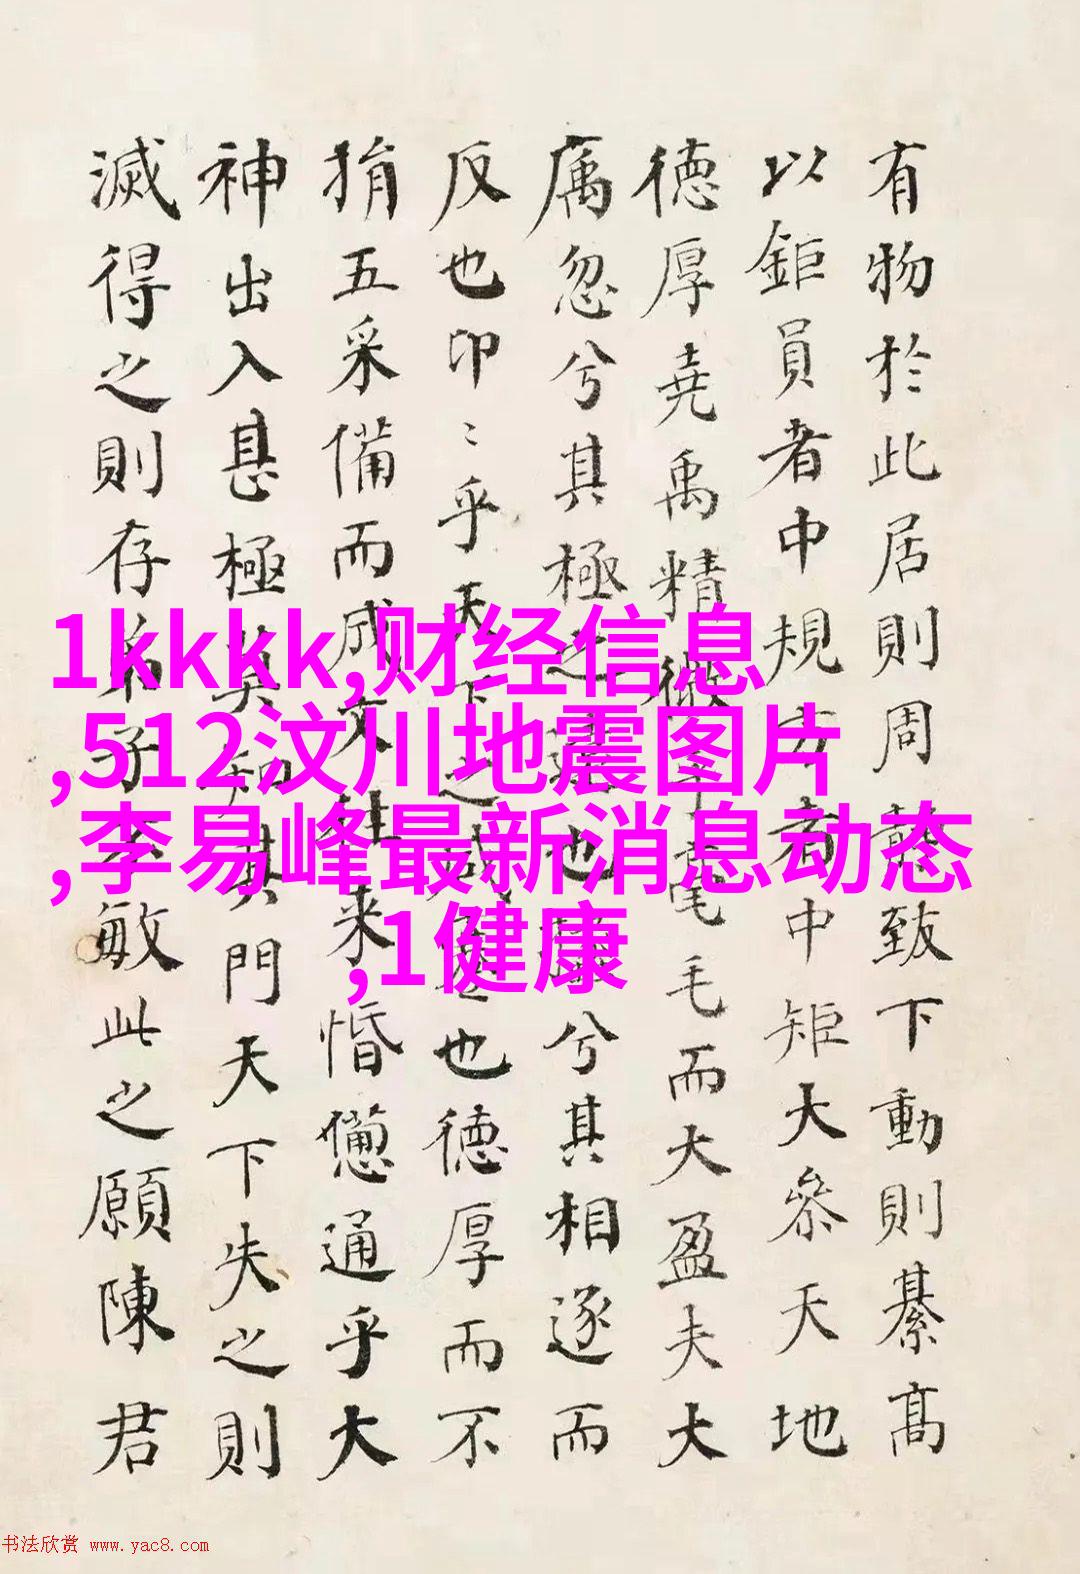 有物於此居則周致下動則綦高
以鉅員者中規方者中矩大參天地
德厚堯禹精微乎毫毛而大盈夫大
厲忽兮其極之遠也兮其相逐而
反也卬〻乎天下之咸蹇也德厚而不
捐五采備而成文往来惛憊通乎大
神出入甚極莫知其門天下失之則
滅得之則存弟子不敏此之願陳君
1kkkk,财经信息
,512汶川地震图片
,李易峰最新消息动态
,1健康
书法欣赏 www.yac8.com